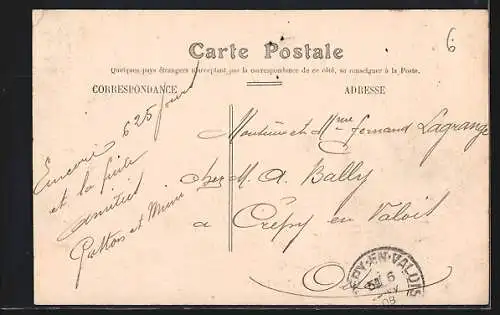 6
Carte Postale
Quelques pays étrangers n'acceptant pas la correspondance de ce côté, se renseigner à la Poste.
CORRESPONDANCE
ADRESSE
Encore 625 jours
et la fuite
amitiés
et Mimi
Monsieur et Mme Fernand Lagrange
chez M. A. Bally
à Crépy en Valois
Oise
EPY-EN-VALOIS
6
08